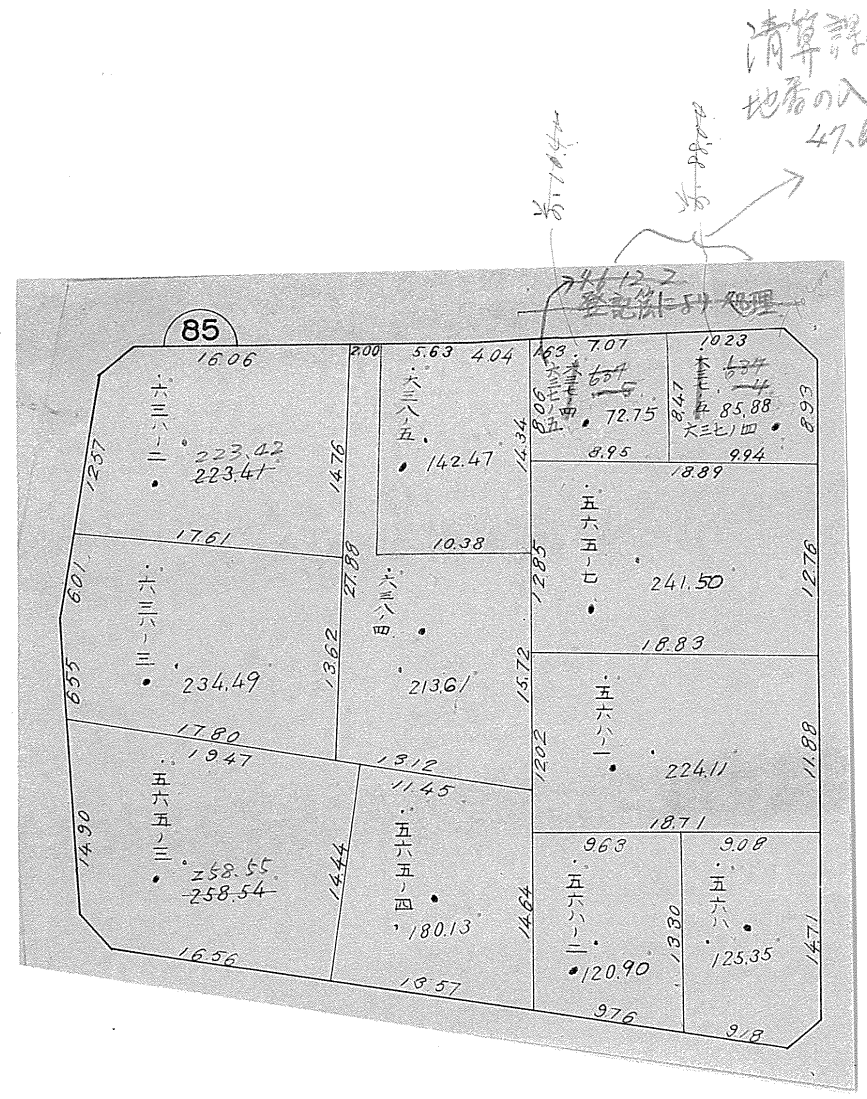 清算課
地番の入
前 10.42
前 88.02
46 12 2
登記簿により処理
85
16.06
2.00
5.63
4.04
1.63
7.07
10.23
六三八ノ二
223.42
223.41
12.57
14.76
17.61
六三八ノ五
142.47
14.34
10.38
8.06
六三七ノ四
六三七ノ五
637
-5
72.75
8.95
8.47
六三七ノ五
637
-4
85.88
六三七ノ四
8.93
9.94
18.89
五六五ノ七
241.50
12.85
12.76
18.83
6.01
六三八ノ三
234.49
6.55
13.62
17.80
27.88
六三八ノ四
213.61
15.72
13.12
五六八ノ一
224.11
12.02
11.88
18.71
19.47
五六五ノ三
258.55
258.54
14.90
14.44
16.56
11.45
五六五ノ四
180.13
14.64
13.57
9.63
五六八ノ二
120.90
13.30
9.76
9.08
五六八
125.35
14.71
9.18